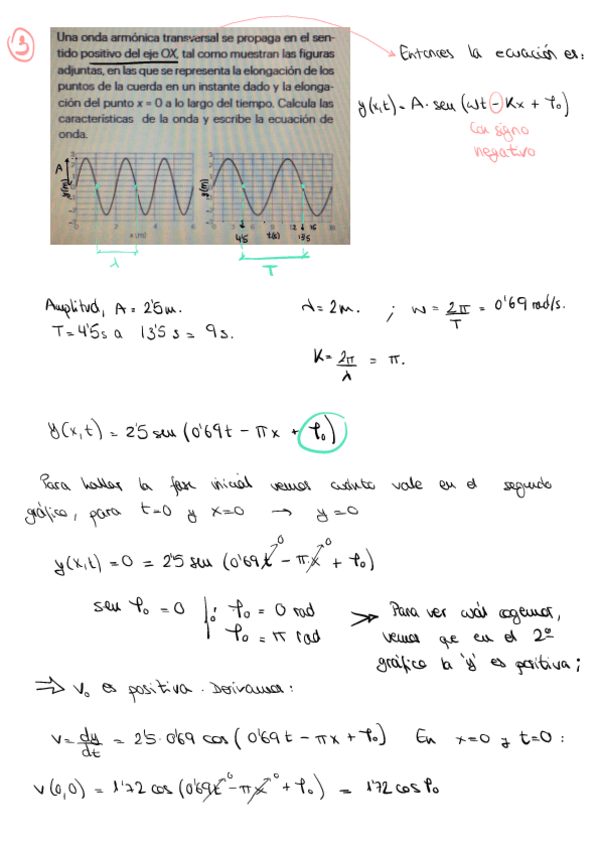 3
Una onda armónica transversal se propaga en el sen-
tido positivo del eje OX, tal como muestran las figuras
adjuntas, en las que se representa la elongación de los
puntos de la cuerda en un instante dado y la elonga-
ción del punto x = 0 a lo largo del tiempo. Calcula las
características de la onda y escribe la ecuación de
onda.
Entonces la ecuación es:
y(x,t) = A · sen (ωt - Kx + φ₀)
Con signo
negativo
A
y(m)
0 2 4 6
x (m)
y(m)
4'5 t(s) 13'5
λ
T
Amplitud, A = 2'5 m.
T = 4'5 s a 13'5 s = 9 s.
λ = 2 m. ; w = 2π/T = 0'69 rad/s.
K = 2π/λ = π.
y(x,t) = 2'5 sen (0'69t - πx + φ₀)
Para hallar la fase inicial vemos cuánto vale en el segundo
gráfico, para t=0 y x=0 → y=0
y(x,t) = 0 = 2'5 sen (0'69t - π·x + φ₀)
0 0
sen φ₀ = 0
φ₀ = 0 rad
φ₀ = π rad
Para ver cuál cogemos,
vemos que en el 2º
gráfico la 'y' es positiva;
⇒ v₀ es positiva. Derivamos:
v = dy/dt = 2'5·0'69 cos (0'69t - πx + φ₀) En x=0 y t=0:
v(0,0) = 1'72 cos (0'69t - πx + φ₀) = 1'72 cos φ₀
0 0